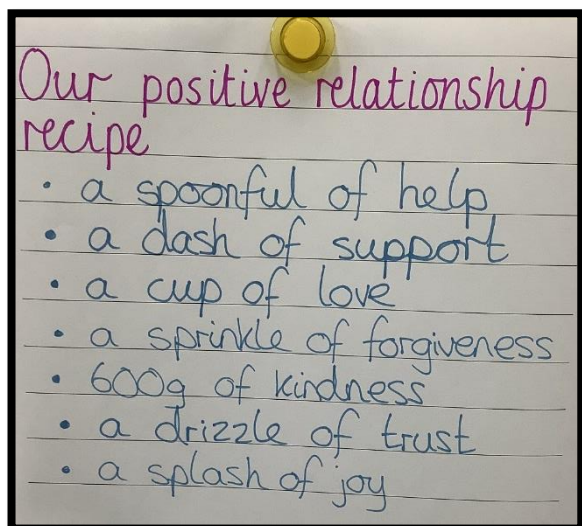 Our positive relationship
recipe
• a spoonful of help
• a dash of support
• a cup of love
• a sprinkle of forgiveness
• 600g of kindness
• a drizzle of trust
• a splash of joy